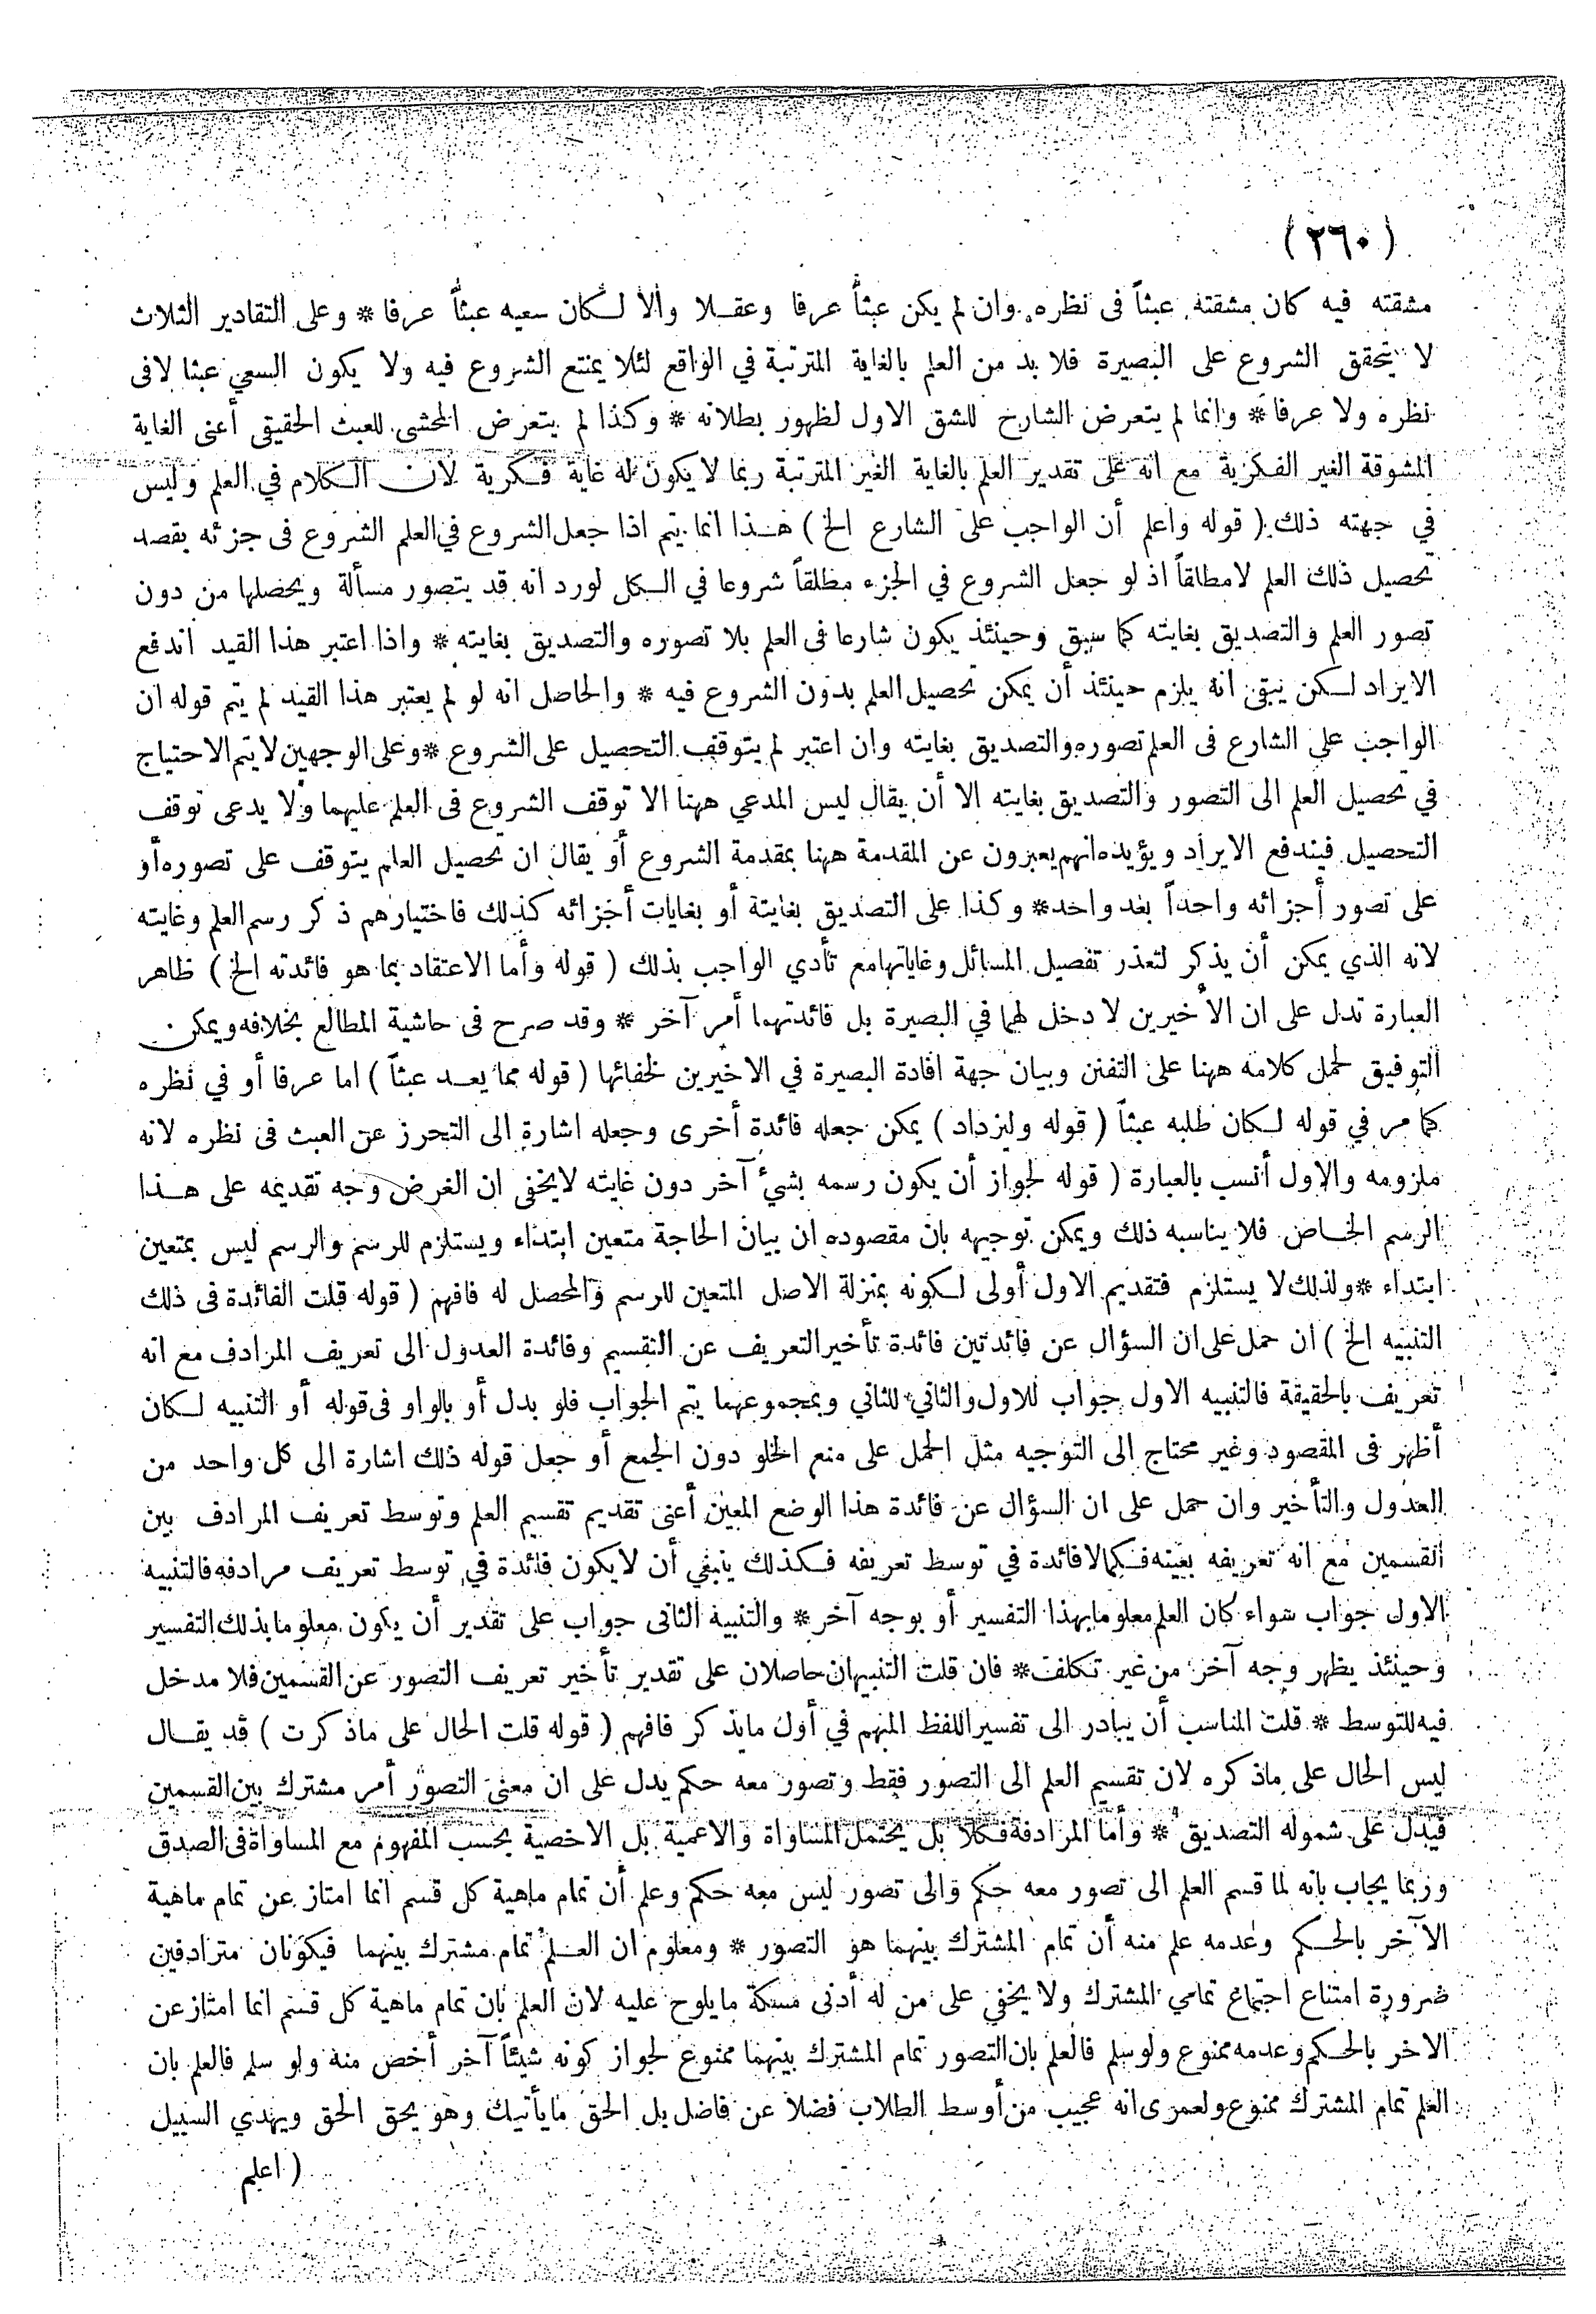 (٢٦٠)
مشقته فيه كان مشقته عبثاً فى نظره وان لم يكن عبثاً عرفا وعقلا والا لكان سعيه عبثاً عرفا * وعلى التقادير الثلاث
لا يتحقق الشروع على البصيرة فلا بد من العلم بالغاية المترتبة في الواقع لئلا يمتنع الشروع فيه ولا يكون السعي عبثا لا فى
نظره ولا عرفا * وانما لم يتعرض الشارح للشق الاول لظهور بطلانه * وكذا لم يتعرض المحشى للعبث الحقيقى أعنى الغاية
المشوقة الغير الفكرية مع انه على تقدير العلم بالغاية الغير المترتبة ربما لا يكون له غاية فكرية لان الكلام في العلم وليس
في جهته ذلك ( قوله واعلم أن الواجب على الشارع الخ ) هذا انما يتم اذا جعل الشروع في العلم الشروع فى جزئه بقصد
تحصيل ذلك العلم لا مطلقاً اذ لو جعل الشروع في الجزء مطلقاً شروعا في الكل لورد انه قد يتصور مسألة ويحصلها من دون
تصور العلم والتصديق بغايته كما سبق وحينئذ يكون شارعا فى العلم بلا تصوره والتصديق بغايته * واذا اعتبر هذا القيد اندفع
الايراد لكن يبقى انه يلزم حينئذ أن يمكن تحصيل العلم بدون الشروع فيه * والحاصل انه لو لم يعتبر هذا القيد لم يتم قوله ان
الواجب على الشارع فى العلم تصوره والتصديق بغايته وان اعتبر لم يتوقف التحصيل على الشروع * وعلى الوجهين لا يتم الاحتياج
في تحصيل العلم الى التصور والتصديق بغايته الا أن يقال ليس المدعي ههنا الا توقف الشروع فى العلم عليهما ولا يدعى توقف
التحصيل فيندفع الايراد ويؤيده انهم يعبرون عن المقدمة ههنا بمقدمة الشروع أو يقال ان تحصيل العلم يتوقف على تصوره أو
على تصور أجزائه واحداً بعد واحد * وكذا على التصديق بغايتة أو بغايات أجزائه كذلك فاختيارهم ذكر رسم العلم وغايته
لانه الذي يمكن أن يذكر لتعذر تفصيل المسائل وغاياتها مع تأدي الواجب بذلك ( قوله وأما الاعتقاد بما هو فائدته الخ ) ظاهر
العبارة تدل على ان الأخيرين لا دخل لهما في البصيرة بل فائدتهما أمر آخر * وقد صرح فى حاشية المطالع بخلافه ويمكن
التوفيق لحمل كلامه ههنا على التفنن وبيان جهة افادة البصيرة في الاخيرين لخفائها ( قوله مما يعد عبثاً ) اما عرفا أو في نظره
كما مر في قوله لكان طلبه عبثاً ( قوله وليزداد ) يمكن جعله فائدة أخرى وجعله اشارة الى التحرز عن العبث فى نظره لانه
ملزومه والاول أنسب بالعبارة ( قوله لجواز أن يكون رسمه بشئ آخر دون غايته لا يخفى ان الغرض وجه تقديمه على هذا
الرسم الخاص فلا يناسبه ذلك ويمكن توجيهه بان مقصوده ان بيان الحاجة متعين ابتداء ويستلزم للرسم والرسم ليس بمتعين
ابتداء * ولذلك لا يستلزم فتقديم الاول أولى لكونه بمنزلة الاصل المتعين للرسم والمحصل له فافهم ( قوله قلت الفائدة فى ذلك
التنبيه الخ ) ان حمل على ان السؤال عن فائدتين فائدة تأخير التعريف عن التقسيم وفائدة العدول الى تعريف المرادف مع انه
تعريف بالحقيقة فالتنبيه الاول جواب للاول والثاني للثاني وبمجموعهما يتم الجواب فلو بدل أو بالواو فى قوله أو التنبيه لكان
أظهر فى المقصود وغير محتاج الى التوجيه مثل الحمل على منع الخلو دون الجمع أو جعل قوله ذلك اشارة الى كل واحد من
العدول والتأخير وان حمل على ان السؤال عن فائدة هذا الوضع المعين أعنى تقديم تقسيم العلم وتوسط تعريف المرادف بين
القسمين مع انه تعريفه بعينه فكما لا فائدة في توسط تعريفه فكذلك ينبغي أن لا يكون فائدة في توسط تعريف مرادفه فالتنبيه
الاول جواب سواء كان العلم معلوما بهذا التفسير أو بوجه آخر * والتنبية الثانى جواب على تقدير أن يكون معلوما بذلك التفسير
وحينئذ يظهر وجه آخر من غير تكلف * فان قلت التنبيهان حاصلان على تقدير تأخير تعريف التصور عن القسمين فلا مدخل
فيه للتوسط * قلت المناسب أن يبادر الى تفسير اللفظ المبهم في أول ما يذكر فافهم ( قوله قلت الحال على ما ذكرت ) قد يقال
ليس الحال على ما ذكره لان تقسيم العلم الى التصور فقط وتصور معه حكم يدل على ان معنى التصور أمر مشترك بين القسمين
فيدل على شموله التصديق * وأما المرادفة فكلا بل يحتمل المساواة والاعمية بل الاخصية بحسب المفهوم مع المساواة فى الصدق
وربما يجاب بانه لما قسم العلم الى تصور معه حكم والى تصور ليس معه حكم وعلم أن تمام ماهية كل قسم انما امتاز عن تمام ماهية
الآخر بالحكم وعدمه علم منه أن تمام المشترك بينهما هو التصور * ومعلوم ان العلم تمام مشترك بينهما فيكونان مترادفين
ضرورة امتناع اجتماع تمامي المشترك ولا يخفي على من له أدنى مسكة ما يلوح عليه لان العلم بان تمام ماهية كل قسم انما امتاز عن
الاخر بالحكم وعدمه ممنوع ولو سلم فالعلم بان التصور تمام المشترك بينهما ممنوع لجواز كونه شيئاً آخر أخص منه ولو سلم فالعلم بان
العلم تمام المشترك ممنوع ولعمرى انه عجيب من أوسط الطلاب فضلا عن فاضل بل الحق ما يأتيك وهو يحق الحق ويهدي السبيل
( اعلم